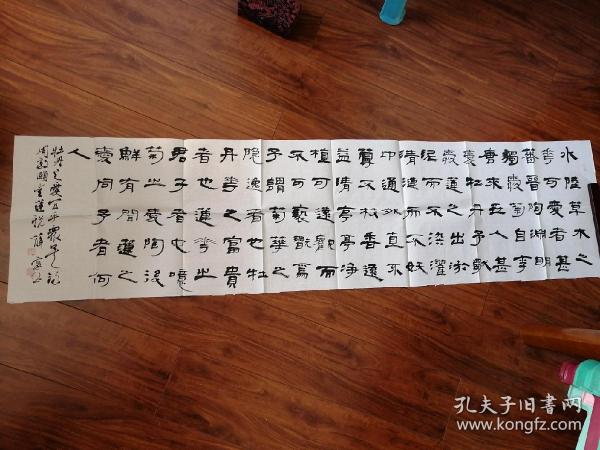 水陸草木之
華可愛者甚
蕃晉陶淵明
獨愛菊自李
唐來世人甚
愛牡丹予獨
愛蓮之出淤
泥而不染濯
清漣而不妖
中通外直不
蔓不枝香遠
益清亭亭淨
植可遠觀而
不可褻翫焉
予謂菊華之
隱逸者也牡
丹華之富貴
者也蓮華之
君子者也噫
菊之愛陶後
鮮有聞蓮之
愛同予者何
人
牡丹之愛宜乎眾矣
周敦頤愛蓮說
孔夫子旧書网
www.kongfz.com